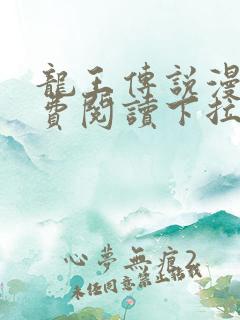 龍王傳說漫
費閱讀下拉
心夢無痕2
未经同意禁止转载